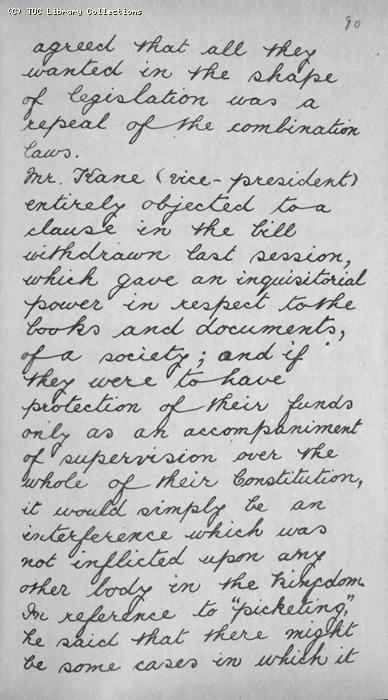 (C) TUC Library Collections
90
agreed that all they
wanted in the shape
of legislation was a
repeal of the combination
laws.
Mr. Kane (vice-president)
entirely objected to a
clause in the bill
withdrawn last session,
which gave an inquisitorial
power in respect to the
books and documents,
of a society; and if
they were to have
protection of their funds
only as an accompaniment
of supervision over the
whole of their Constitution,
it would simply be an
interference which was
not inflicted upon any
other body in the Kingdom.
In reference to "picketing",
he said that there might
be some cases in which it